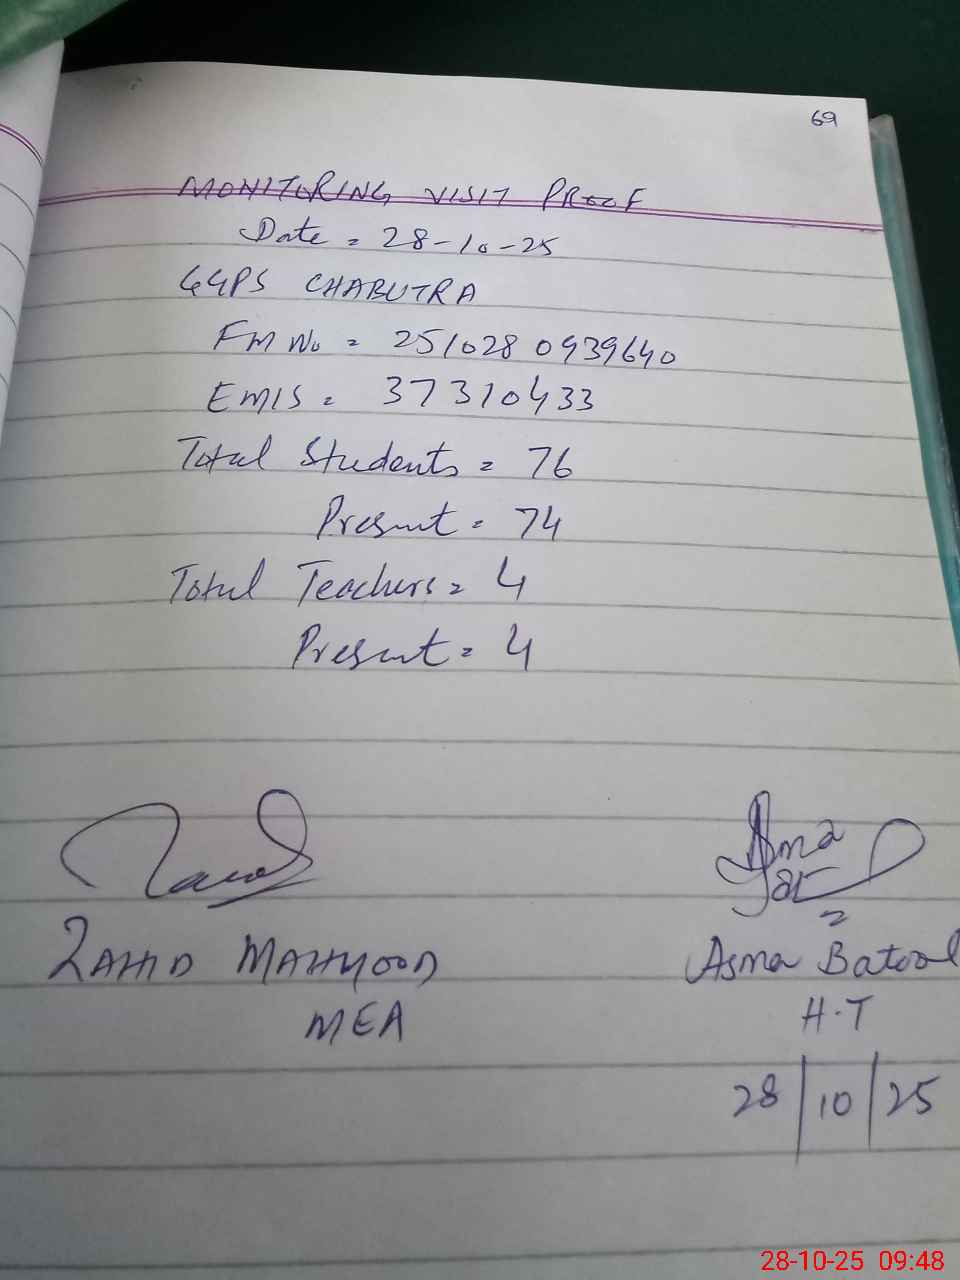 69
MONITORING VISIT PROOF
Date = 28-10-25
GGPS CHABUTRA
FM No = 2510280939640
EMIS = 37310433
Total Students = 76
Present = 74
Total Teachers = 4
Present = 4
Asma
ZAHID MAHMOOD
Asma Batool
MEA
H.T
28/10/25
28-10-25 09:48